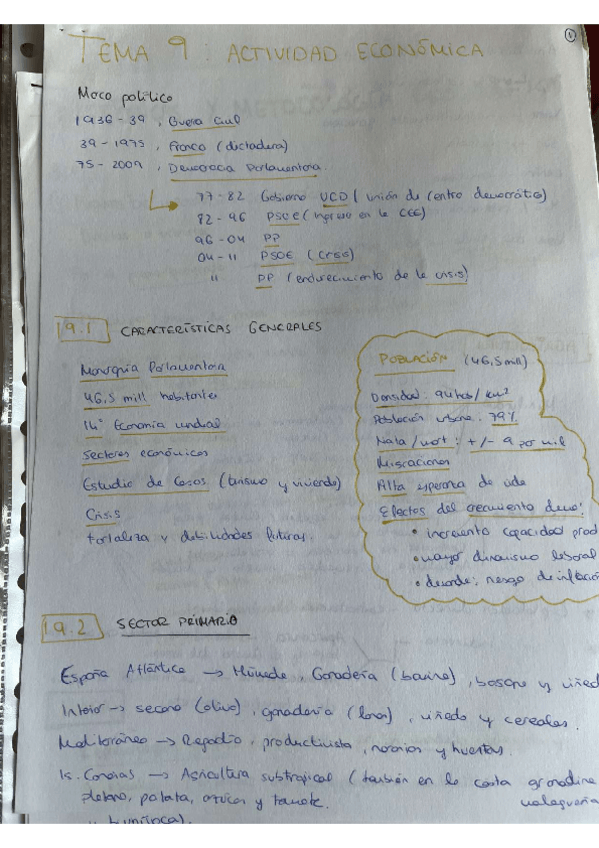 TEMA 9: ACTIVIDAD ECONÓMICA
Marco político
1936-39, Guerra Civil
39-1975, Franco (dictadura)
75-2009, Democracia Parlamentaria
77-82 Gobierno UCD (unión de centro democrático)
82-96 PSOE (ingreso en la CEE)
96-04 PP
04-11 PSOE (crisis)
11 PP (endurecimiento de la crisis)
9.1 CARACTERÍSTICAS GENERALES
Monarquía Parlamentaria
46,5 mill habitantes
14ª Economía mundial
Sectores económicos
Estudio de Casos (turismo y vivienda)
Crisis
Fortaleza y debilidades futuras.
POBLACIÓN (46,5 mill)
Densidad: 92 hab/km²
Población urbana: 79%
Nata/mort: +/- 9 por mil
Migraciones
Alta esperanza de vida
Efectos del crecimiento demo:
• incremento capacidad prod
• mayor dinamismo laboral
• desorde: riesgo de inflación
9.2 SECTOR PRIMARIO
España Atlántica → Húmeda, Ganadería (bovino), bosque y viñed
Interior → secano (olivo), ganadería (lana), viñedo y cereales.
Mediterráneo → Regadío, productivista, naranjos y huertas
Is. Canarias → Agricultura subtropical (también en la costa granadina
plátano, patata, azúcar y tomate. malagueña
y turística).